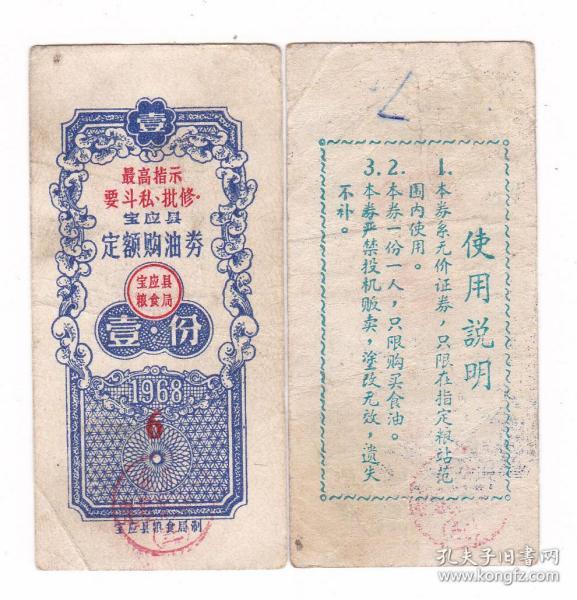 壹
最高指示
要斗私、批修·
宝应县
定额购油券
宝应县
粮食局
壹·份
1968
6
宝应县粮食局制
使用説明
1.本券系无价证券，只限在指定粮站范
围内使用。
2.本券一份一人，只限购买食油。
3.本券严禁投机贩卖，塗改无效，遗失
不补。
孔夫子旧书网
www.kongfz.com